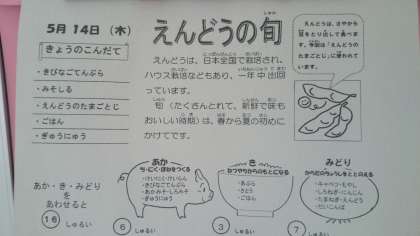 えんどうの旬
5月14日（木）
きょうのこんだて
・きびなごてんぷら
・みそしる
・えんどうのたまごとじ
・ごはん
・ぎゅうにゅう
えんどうは、日本全国で栽培され、
ハウス栽培などもあり、一年中出回
っています。
旬（たくさんとれて、新鮮で味も
おいしい時期）は、春から夏の初めに
かけてです。
えんどうは、さやから
豆をとり出して食べま
す。今回は「えんどうの
たまごとじ」に使われて
います。
あか・き・みどり
をあわせると
16 しゅるい
あか
ち・にく・ほねをつくる
・きびなごてんぷら
・ぎゅうにゅう
6 しゅるい
き
・あぶら
・さとう
・ごはん
3 しゅるい
みどり
からだのちょうしをととのえる
・キャベツ・もやし
・しろねぎ・にんじん
・たまねぎ・えんどう
・だいこんば
7 しゅるい